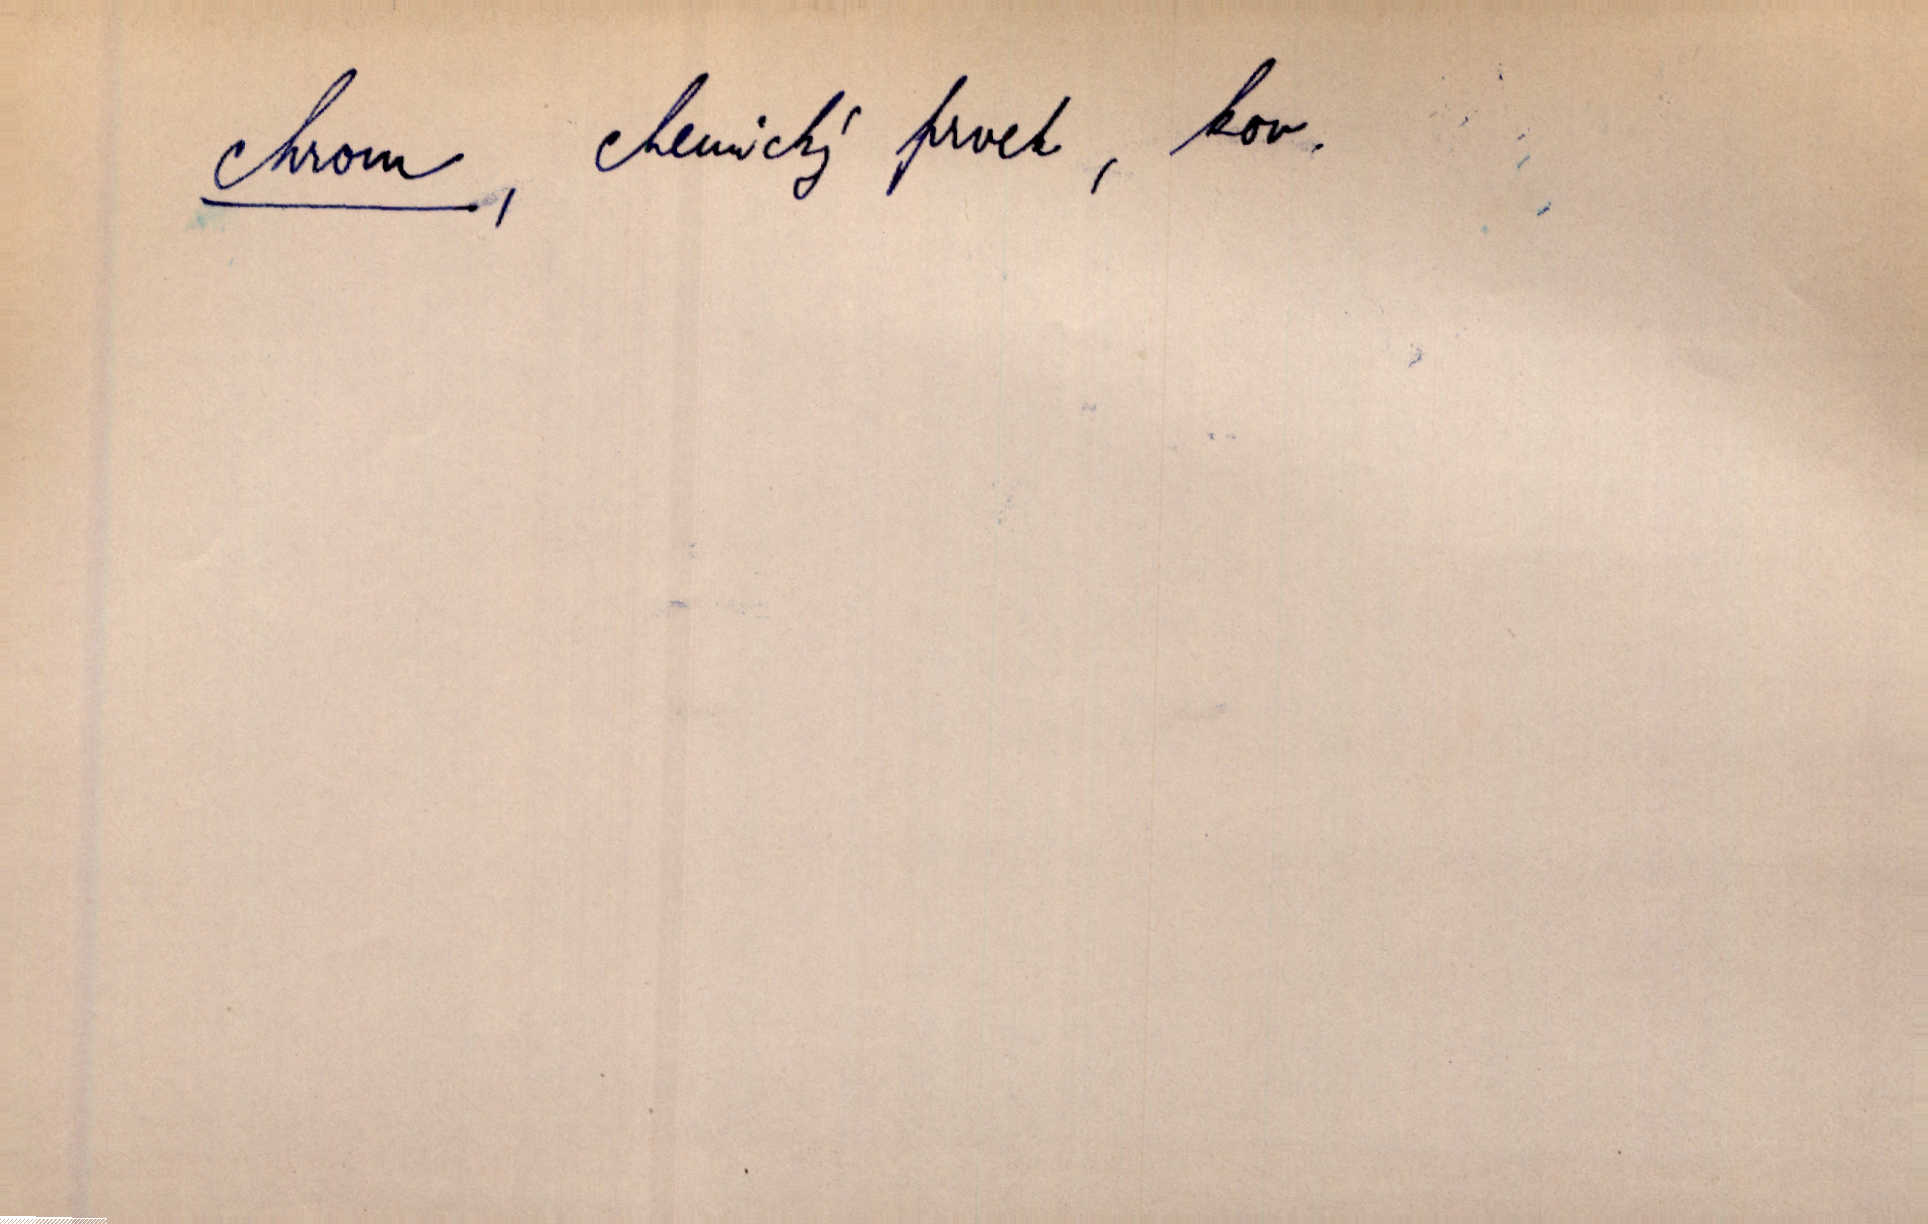 chrom, chemický prvek, kov.